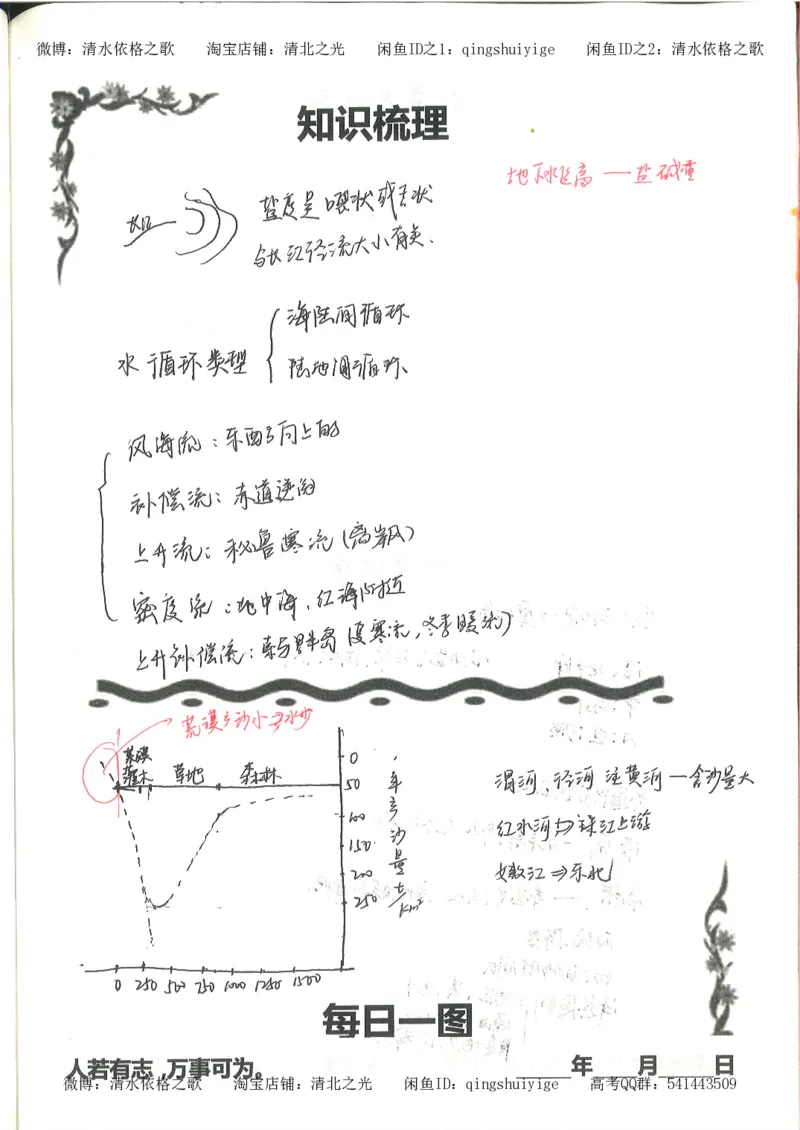 微博：清水依格之歌 淘宝店铺：清北之光 闲鱼ID之1：qingshuiyige 闲鱼ID之2：清水依格之歌
知识梳理
地下水位高 — 盐碱重
长江
盐度是喂状或舌状
与长江径流大小有关.
水循环类型
海陆间循环
陆地内循环、
风海流：东西方向上的
补偿流：赤道逆的
上升流：秘鲁寒流(离岸风)
密度流：地中海、红海附近
上升补偿流：索马里半岛(夏寒流,冬季暖流)
荒漠产沙小因水少
荒漠
灌木 草地 森林
0
50
100
150
200
250
年产沙量 t/km²
0 250 500 750 1000 1250 1500
渭河、泾河 注黄河 — 含沙量大
红水河⇒珠江上游
嫩江⇒东北
每日一图
人若有志,万事可为。
年 月 日
微博：清水依格之歌 淘宝店铺：清北之光 闲鱼ID：qingshuiyige 高考QQ群：541443509